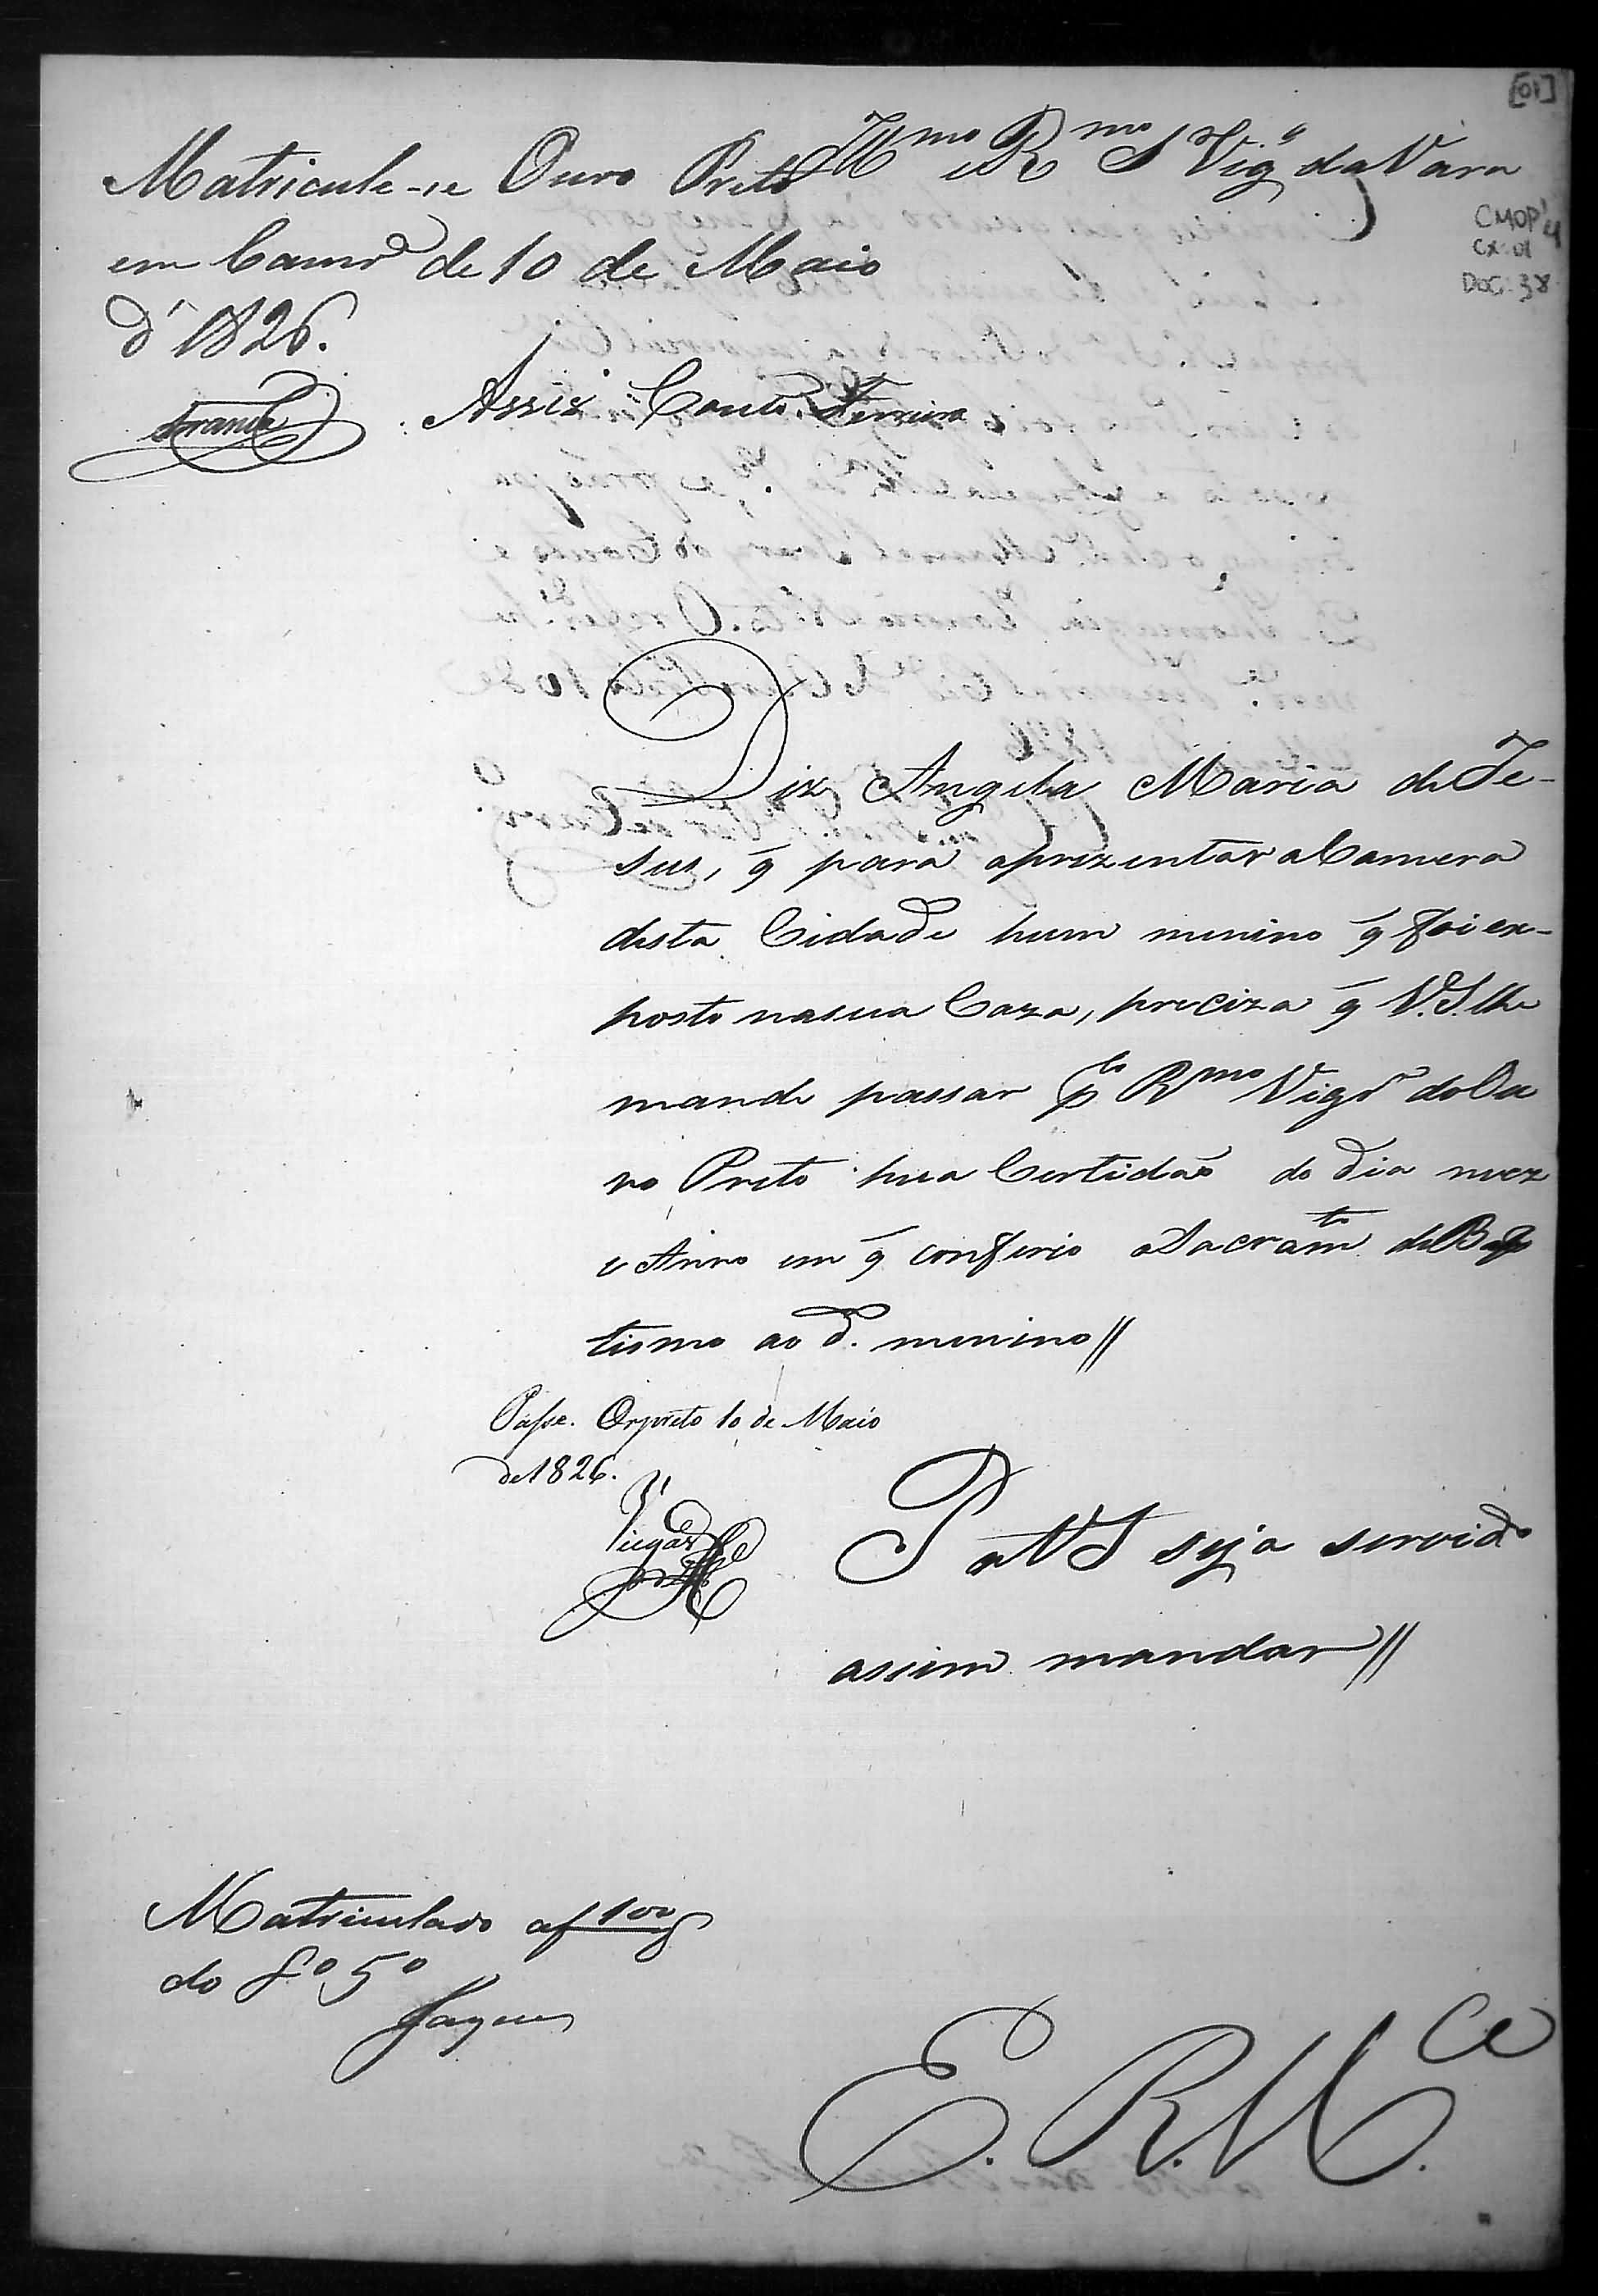 [01]
Illmo e Rmo Sr Vigro da Vara
CMOP
Cx. 01
DOC. 38
Matricule-se Ouro Preto
em Camra de 10 de Maio
d' 1826.
Assiz Couto Ferreira
Diz Angela Maria de Je-
sus, q̃ para aprezentar a Camera
desta Cidade hum menino q̃ foi ex-
posto na sua Caza, preciza q̃ V.S. lhe
mande passar plo Rmo Vigro do Ou
ro Preto hua Certidaõ do dia mez
e Anno em q̃ conferio o Sacramto de Bap
tismo ao d. menino //
Passe. Orpreto 10 de Maio
de 1826.
P a V S seja servido
assim mandar //
Matriculado a f 100
do Lo 5o
E. R. M.ce